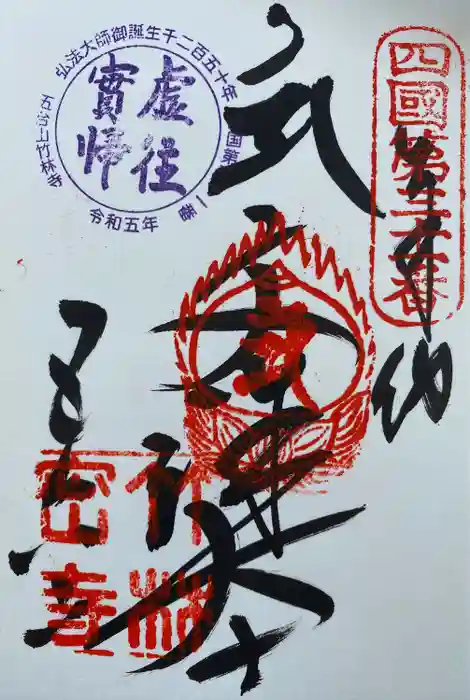 奉納
四國第三十一番
文殊大士
五台山
竹林
密寺
弘法大師御誕生千二百五十年
国第
一番
令和五年
五台山竹林寺
虚往
實帰